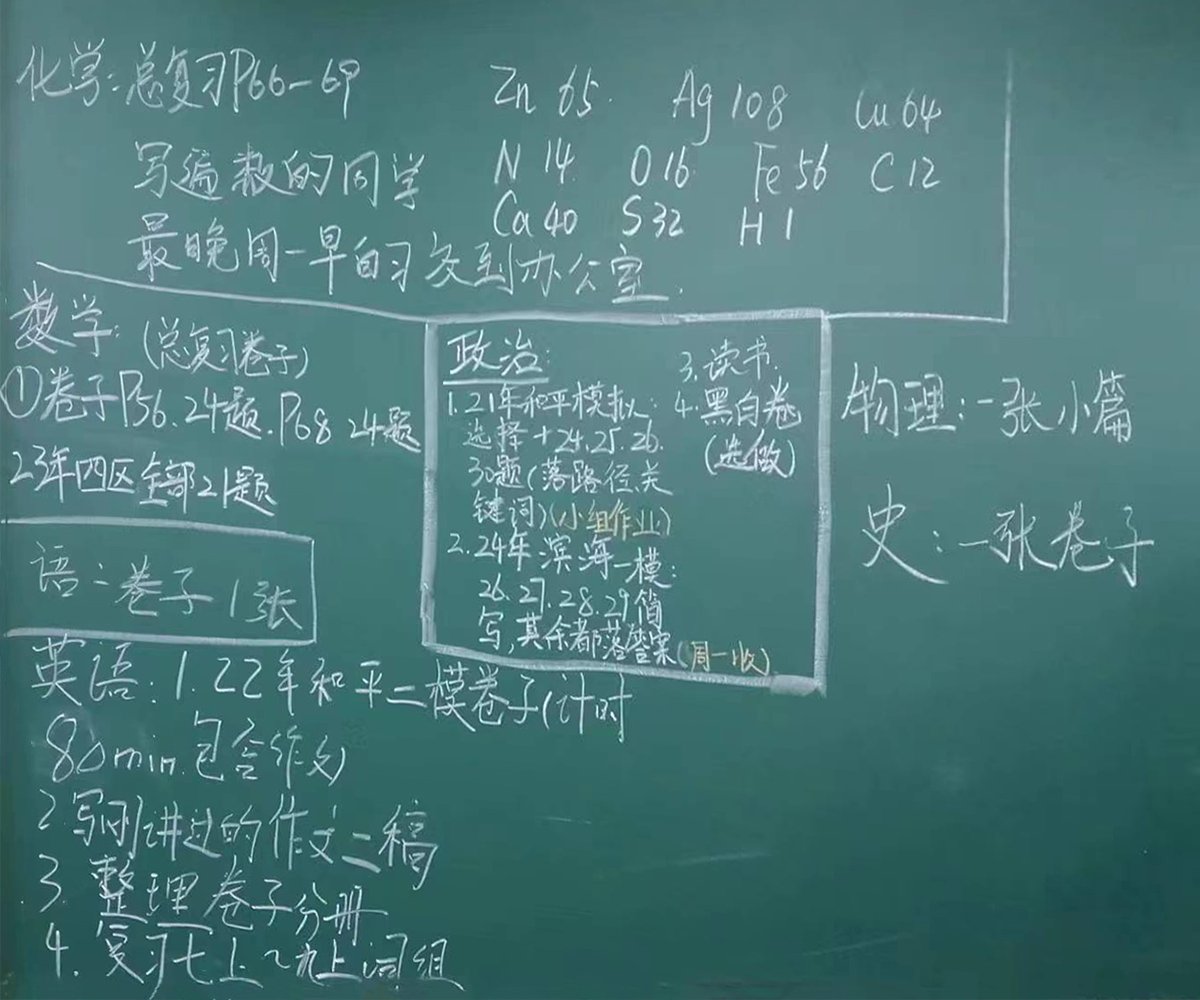 化学:总复习P66-69
写遍数的同学
最晚周一早自习交到办公室.
Zn 65. Ag 108 Cu 64
N 14 O 16 Fe 56 C 12
Ca 40 S 32 H 1
数学:(总复习卷子)
①卷子P56.24题.P68 24题
23年四区全部21题
语:卷子1张
英语:1.22年和平二模卷子(计时
80min.包含作文)
2.写刚讲过的作文二稿
3.整理卷子分册
4.复习七上~九上词组
政治:
1.21年和平模拟:
选择+24.25.26.
30题(落路径关
键词)(小组作业)
2.24年滨海一模:
26.27.28.29简
写,其余都落答案(周一收)
3.读书.
4.黑白卷
(选做)
物理:一张小篇
史:一张卷子